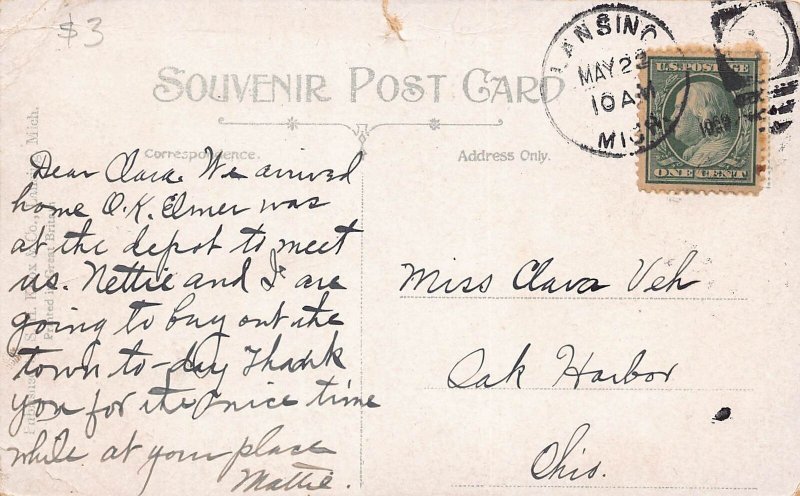 $3
SOUVENIR POST CARD
Correspondence.
Address Only.
LANSING
MAY 22
10 AM
MICH.
U.S. POSTAGE
ONE CENT
Dear Clara. We arrived
home O.K. Elmer was
at the depot to meet
us. Nettie and I are
going to buy out the
town to-day Thank
you for the nice time
while at your place
Mattie.
Miss Clara Veh
Oak Harbor
Ohio.
Mich.
Printed in Great Britain